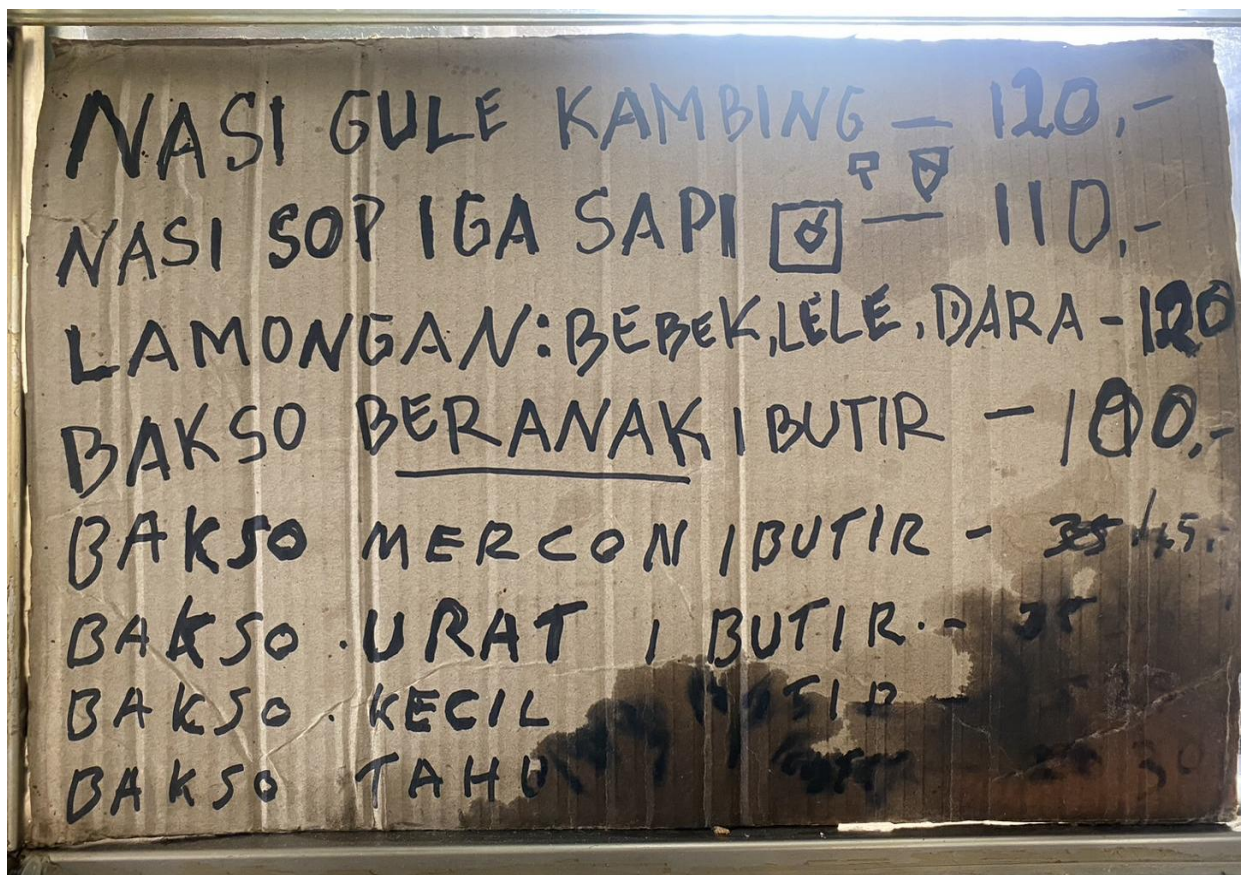 NASI GULE KAMBING — 120,-
NASI SOP IGA SAPI — 110,-
LAMONGAN: BEBEK, LELE, DARA - 120
BAKSO BERANAK 1 BUTIR — 100,-
BAKSO MERCON 1 BUTIR -
BAKSO . URAT 1 BUTIR . - 35
BAKSO . KECIL
BAKSO TAHU 30